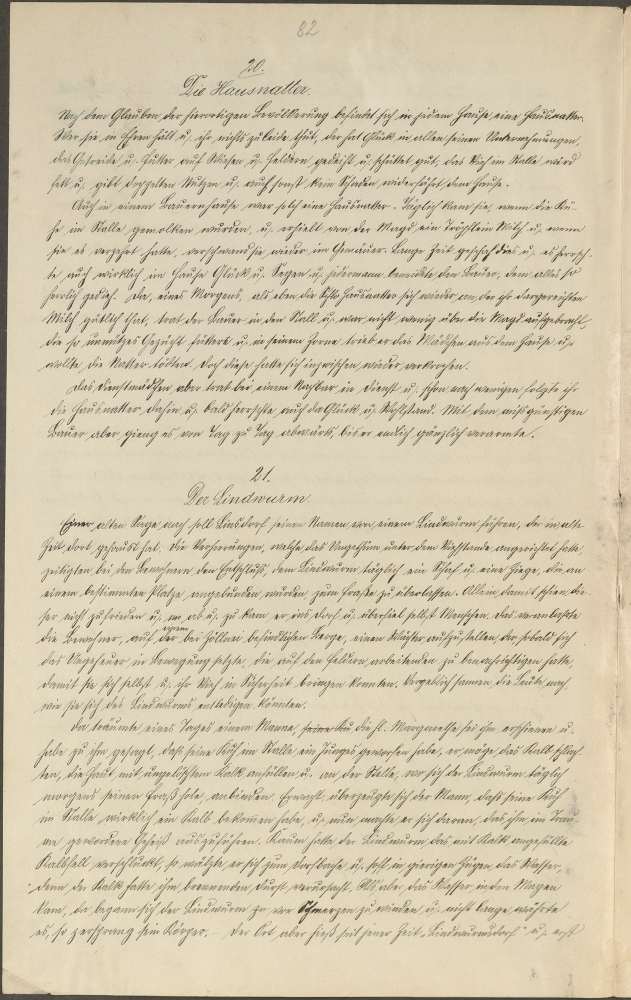 82
20.
Die Hausnatter.
Nach dem Glauben der hierortigen Bevölkerung befindet sich in jedem Hause eine Hausnatter.
Wer sie in Ehren hält u. ihr nichts zuleide thut, der hat Glück in allen seinen Unternehmungen,
das Getreide u. Futter auf Wiesen u. Feldern gedeiht u. schüttet gut, das Vieh im Stalle wird
fett u. gibt doppelten Nutzen u. auch sonst kein Schaden widerfährt dem Hause.
Auch in einem Bauernhause war solch eine Hausnatter. Täglich kam sie, wenn die Kü-
he im Stalle gemolken wurden, u. erhielt von der Magd ein Tröpflein Milch u. wenn
sie es verzehrt hatte, verschwand sie wieder im Gemäuer. Lange Zeit geschah dies u. es herrsch-
te auch wirklich im Hause Glück u. Segen u. jedermann beneidete den Bauer, dem alles so
herrlich gedieh. Da, eines Morgens, als eben die Hausnatter sich wieder an der ihr dargereichten
Milch gütlich that, trat der Bauer in den Stall u. war nicht wenig über die Magd aufgebracht,
die so unnützes Gezücht füttere u. in seinem Zorne trieb er das Mädchen aus dem Hause u.
wollte die Natter tödten. Doch diese hatte sich inzwischen wieder verkrochen.
Das Dienstmädchen aber trat bei einem Nachbar in Dienst u. schon nach wenigen folgte ihr
die Hausnatter dahin u. bald herrschte auch da Glück u. Wohlstand. Mit dem missgünstigen
Bauer aber gieng es von Tag zu Tag abwärts, bis er endlich gänzlich verarmte.
21.
Der Lindwurm.
Einer alten Sage nach soll Linsdorf seinen Namen von einem Lindwurm führen, der in alter
Zeit dort gehaust hat. Die Verheerungen, welche das Ungethüm unter dem Viehstande angerichtet hatte,
zeitigten bei den Bewohnern den Entschluß, dem Lindwurm täglich ein Schaf u. eine Ziege, die an
einem bestimmten Platze angebunden wurden, zum Fraße zu überlassen. Allein damit schien die-
ser nicht zufrieden u. ab u. zu kam er ins Dorf u. überfiel selbst Menschen. Das veranlaßte
die Bewohner, auf einem der bei Zöllen befindlichen Berge, einen Wächter aufzustellen, der, sobald sich
das Ungeheuer in Bewegung setzte, die auf den Feldern arbeitenden zu benachrichtigen hatte,
damit sie sich selbst u. ihr Vieh in Sicherheit bringen konnten. Vergeblich sannen die Leute nach
wie sie sich des Lindwurms entledigen könnten.
Da träumte eines Tages einem Manne, die hl. Margarethe sei ihm erschienen u.
habe zu ihm gesagt, daß seine Kuh im Stalle ein Junges geworfen habe, er möge das Kalb schlach-
ten, die Haut mit ungelöschtem Kalk anfüllen u. an der Stelle, wo sich der Lindwurm täglich
morgens seinen Fraß hole, anbinden. Erwacht, überzeugte sich der Mann, daß seine Kuh
im Stalle wirklich ein Kalb bekommen habe, u. nun machte er sich daran, das ihm im Trau-
me gewordene Geheiß auszuführen. Kaum hatte der Lindwurm das mit Kalk angefüllte
Kalbsfell verschluckt, so wälzte er sich zum Dorfbache u. soff in gierigen Zügen das Wasser,
denn der Kalk hatte ihm brennenden Durst verursacht. Als aber das Wasser in den Magen
kam, da begann sich der Lindwurm vor Schmerzen zu winden u. nicht lange währte
es, so zersprang sein Körper. – Der Ort aber hieß seit jener Zeit „Lindwurmsdorf" u. erst